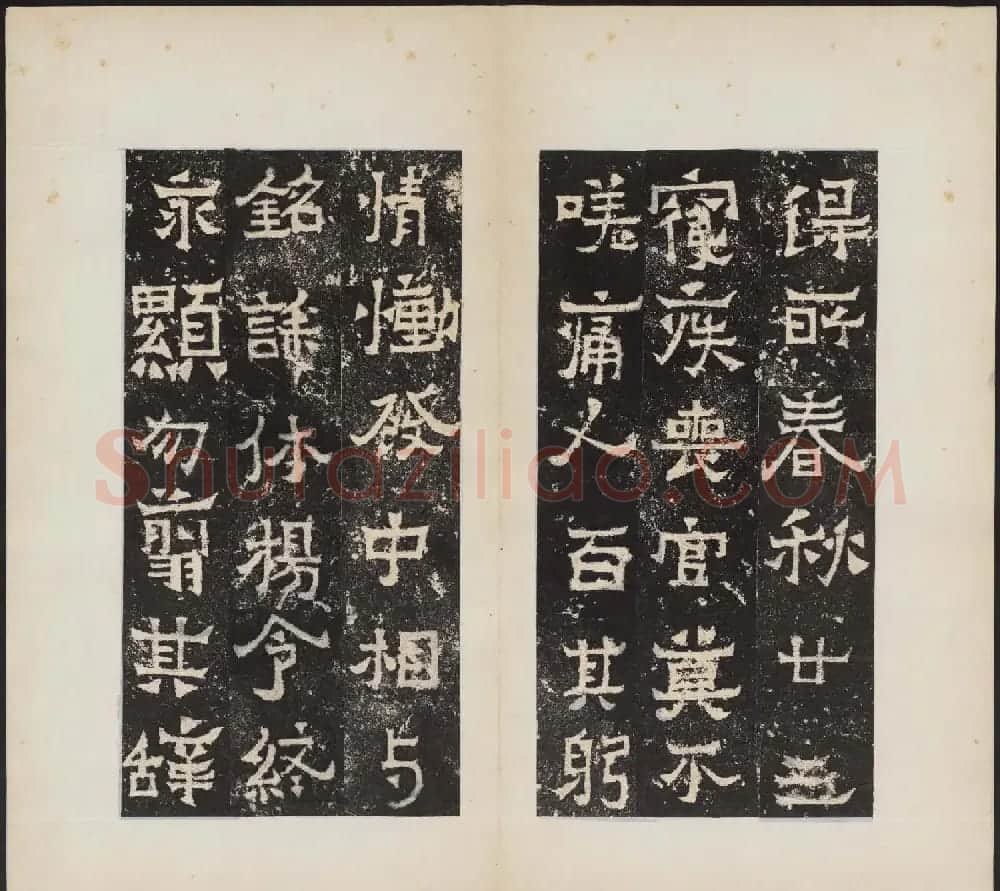 得所春秋廿五
寢疾喪官莫不
嗟痛人百其躬
情慟發中相与
銘誄休揚令終
永顯勿翦其辭
Shufazilidao.COM